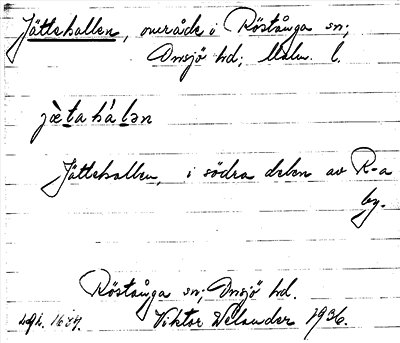 Jättehallen, område i Röstånga sn;
Onsjö hd; Malm. l.
jæ̀tahálən
Jättehallen, i södra delen av R-a
by.
Röstånga sn; Onsjö hd.
Viktor Welander 1936.